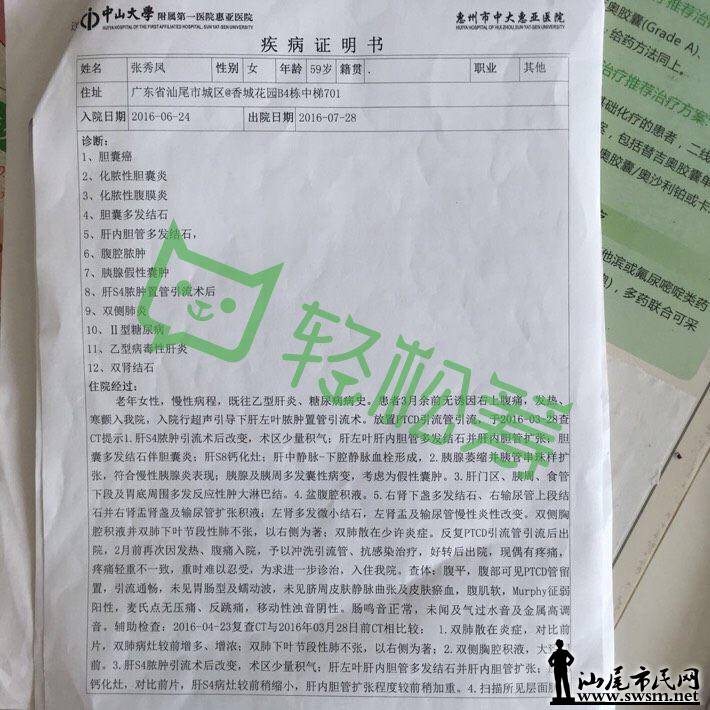 中山大學 附属第一医院惠亚医院
HUIYA HOSPITAL OF THE FIRST AFFILIATED HOSPITAL, SUN YAT-SEN UNIVERSITY
惠州市中大惠亚医院
HUIYA HOSPITAL OF HUIZHOU, SUN YAT-SEN UNIVERSITY
疾病证明书
姓名 张秀凤 性别 女 年龄 59岁 籍贯 . 职业 其他
住址 广东省汕尾市城区@香城花园B4栋中梯701
入院日期 2016-06-24 出院日期 2016-07-28
诊断：
1、胆囊癌
2、化脓性胆囊炎
3、化脓性腹膜炎
4、胆囊多发结石
5、肝内胆管多发结石，
6、腹腔脓肿
7、胰腺假性囊肿
8、肝S4脓肿置管引流术后
9、双侧肺炎
10、Ⅱ型糖尿病
11、乙型病毒性肝炎
12、双肾结石
住院经过：
老年女性，慢性病程，既往乙型肝炎、糖尿病病史。患者3月余前无诱因右上腹痛，发热、
寒颤入我院，入院行超声引导下肝左叶脓肿置管引流术。放置PTCD引流管引流，于2016-03-28查
CT提示1.肝S4脓肿引流术后改变，术区少量积气；肝左叶肝内胆管多发结石并肝内胆管扩张，胆
囊多发结石伴胆囊炎；肝S8钙化灶；肝中静脉-下腔静脉血栓形成，2.胰腺萎缩并胰管串珠样扩
张，符合慢性胰腺炎表现；胰腺及胰周多发囊性病变，考虑为假性囊肿。3.肝门区、胰周、食管
下段及胃底周围多发反应性肿大淋巴结。4.盆腹腔积液。5.右肾下盏多发结石、右输尿管上段结
石并右肾盂肾盏及输尿管扩张积液；左肾多发微小结石，左肾盂及输尿管慢性炎性改变。双侧胸
腔积液并双肺下叶节段性肺不张，以右侧为著；双肺散在少许炎症。反复PTCD引流管引流后出
院，2月前再次因发热、腹痛入院，予以冲洗引流管、抗感染治疗，好转后出院，现偶有疼痛，
疼痛轻重不一致，重时难以忍受，为求进一步诊治，入住我院。查体：腹平，腹部可见PTCD管留
置，引流通畅，未见胃肠型及蠕动波，未见脐周皮肤静脉曲张及皮肤瘀血，腹肌软，Murphy征弱
阳性，麦氏点无压痛、反跳痛，移动性浊音阴性。肠鸣音正常，未闻及气过水音及金属高调
音。辅助检查：2016-04-23复查CT与2016年03月28日前CT相比较： 1.双肺散在炎症，对比前
片，双肺病灶较前增多、增浓；双肺下叶节段性肺不张，以右侧为著；2.双侧胸腔积液，大
前。3.肝S4脓肿引流术后改变，术区少量积气；肝左叶肝内胆管多发结石并肝内胆管扩张；
钙化灶，对比前片，肝S4病灶较前稍缩小，肝内胆管扩张程度较前稍加重。4.扫描所见层面
轻松筹
奥胶囊(Grade A)、
给药方法同上。
治疗推荐治疗方案
基础化疗的患者，二线
案，包括替吉奥胶囊单
奥胶囊/奥沙利铂或卡
他滨或氟尿嘧啶类药
，多药联合可采
汕尾市民网
www.swsm.net